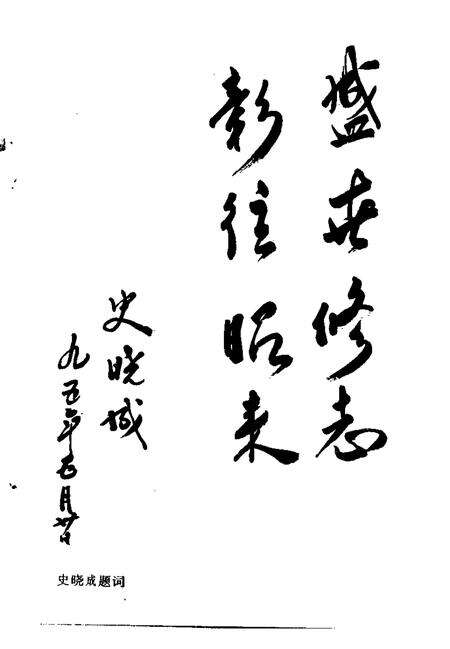 盛世修志
彰往昭来
史晓城
九五年五月廿日
史晓成题词